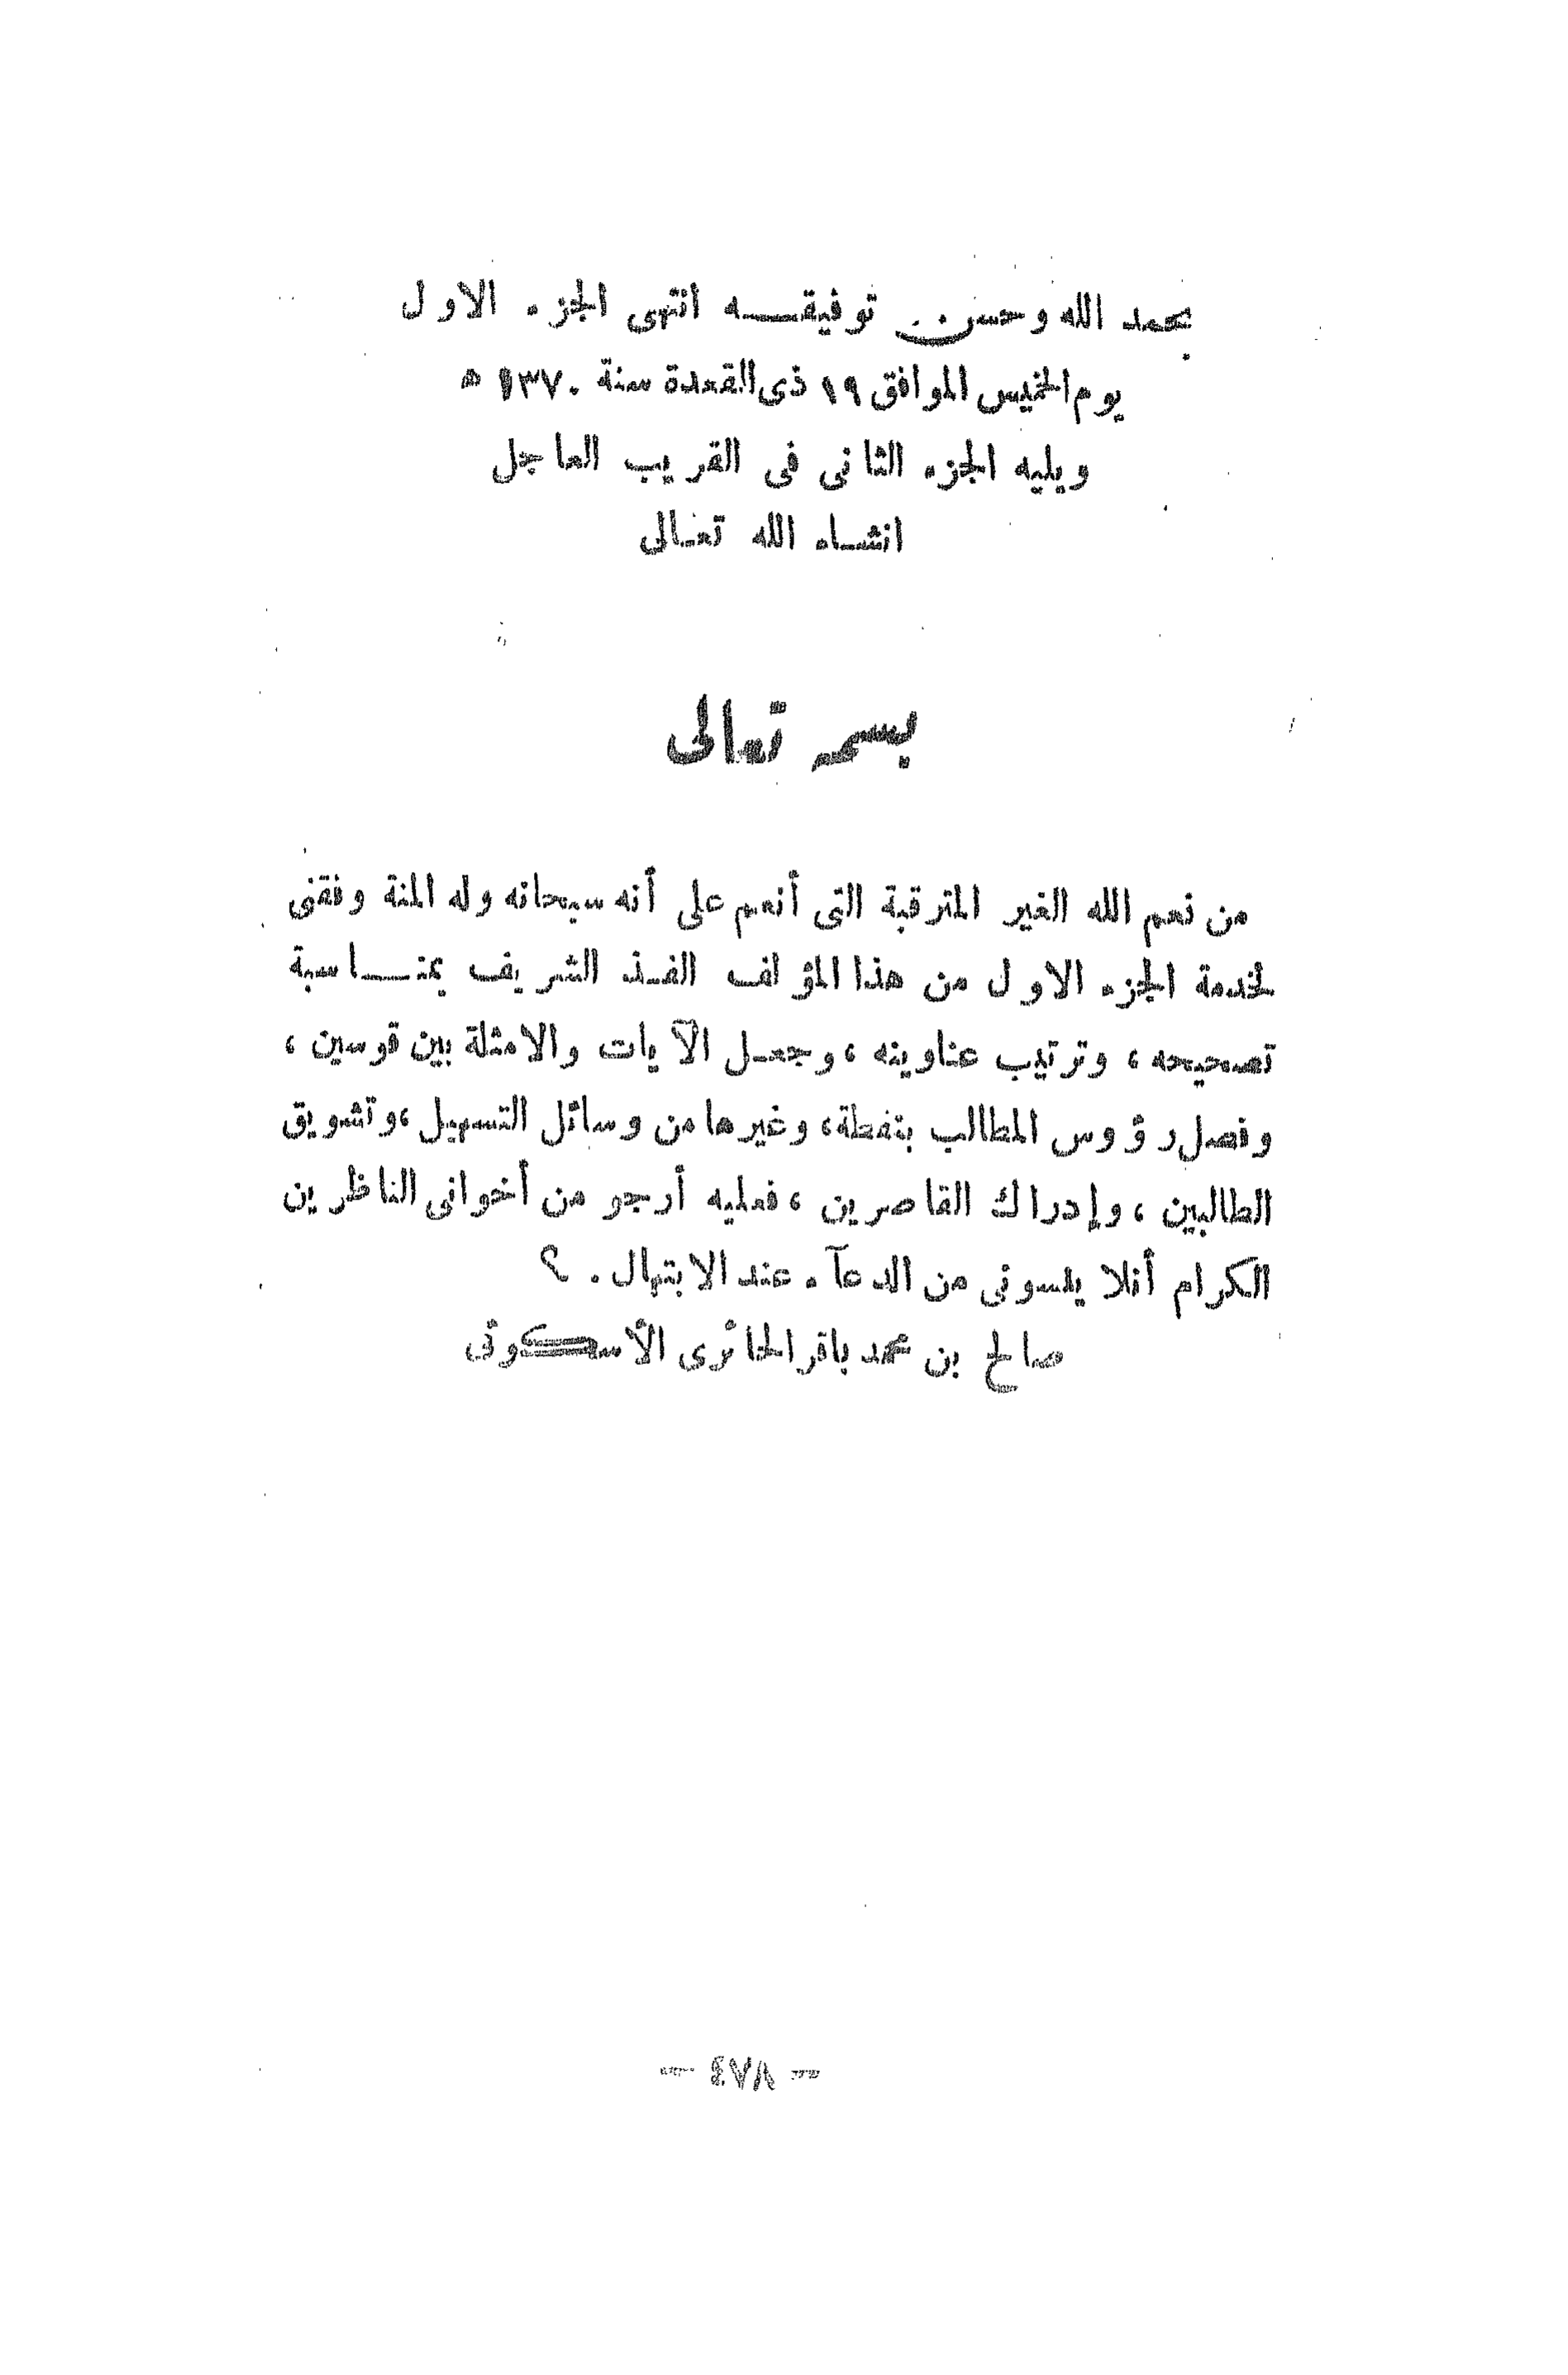 بحمد الله وحسن توفيقه انتهى الجزء الاول
يوم الخميس الموافق ١٩ ذى القعدة سنة ١٣٧٠ ه
ويليه الجزء الثانى فى القريب العاجل
انشاء الله تعالى
بسمه تعالى
من نعم الله الغير المترقبة التى أنعم على أنه سبحانه وله المنة وفقنى
لخدمة الجزء الاول من هذا المؤلف الفذ الشريف بمناسبة
تصحيحه ، وترتيب عناوينه ، وجعل الآيات والامثلة بين قوسين ،
وفصل رؤوس المطالب بنقطة، وغيرها من وسائل التسهيل ، وتشويق
الطالبين ، وإدراك القاصرين ، فعليه أرجو من أخوانى الناظرين
الكرام أنلا ينسونى من الدعآء عند الابتهال . ؟
صالح بن محمد باقر الحائرى الأسكوئى
— ٤٧٨ —